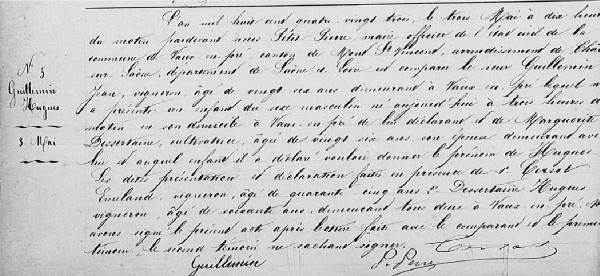 L'an mil huit cent quatre vingt trois, le trois Mai à dix heures
du matin pardevant nous Pierre, maire officier de l'état civil de la
commune de Vaux en pré, canton de Mont St Vincent, arrondissement de
sur Saône, département de Saône et Loire est comparu le sieur Guillemin
Jean, vigneron, âgé de vingt six ans demeurant à Vaux en pré lequel n
a présenté un enfant du sexe masculin né aujourd'hui à trois heures du
matin en son domicile à Vaux en pré de lui déclarant et de Marguerite
Dessertaine, cultivatrice, âgée de vingt six ans son épouse demeurant avec
lui et auquel enfant il a déclaré vouloir donner le prénom de Hugues.
Les dites présentation et déclaration faites en présence de 1°
vigneron, âgé de quarante cinq ans 2° Dessertaine Hugues
vigneron, âgé de soixante ans, demeurant tous deux à Vaux en pré
avons signé le présent acte après lecture faite avec le comparant et le premier
témoin le second témoin ne sachant signer.
Guillemin
N° 5
Guillemin
Hugues
3 Mai